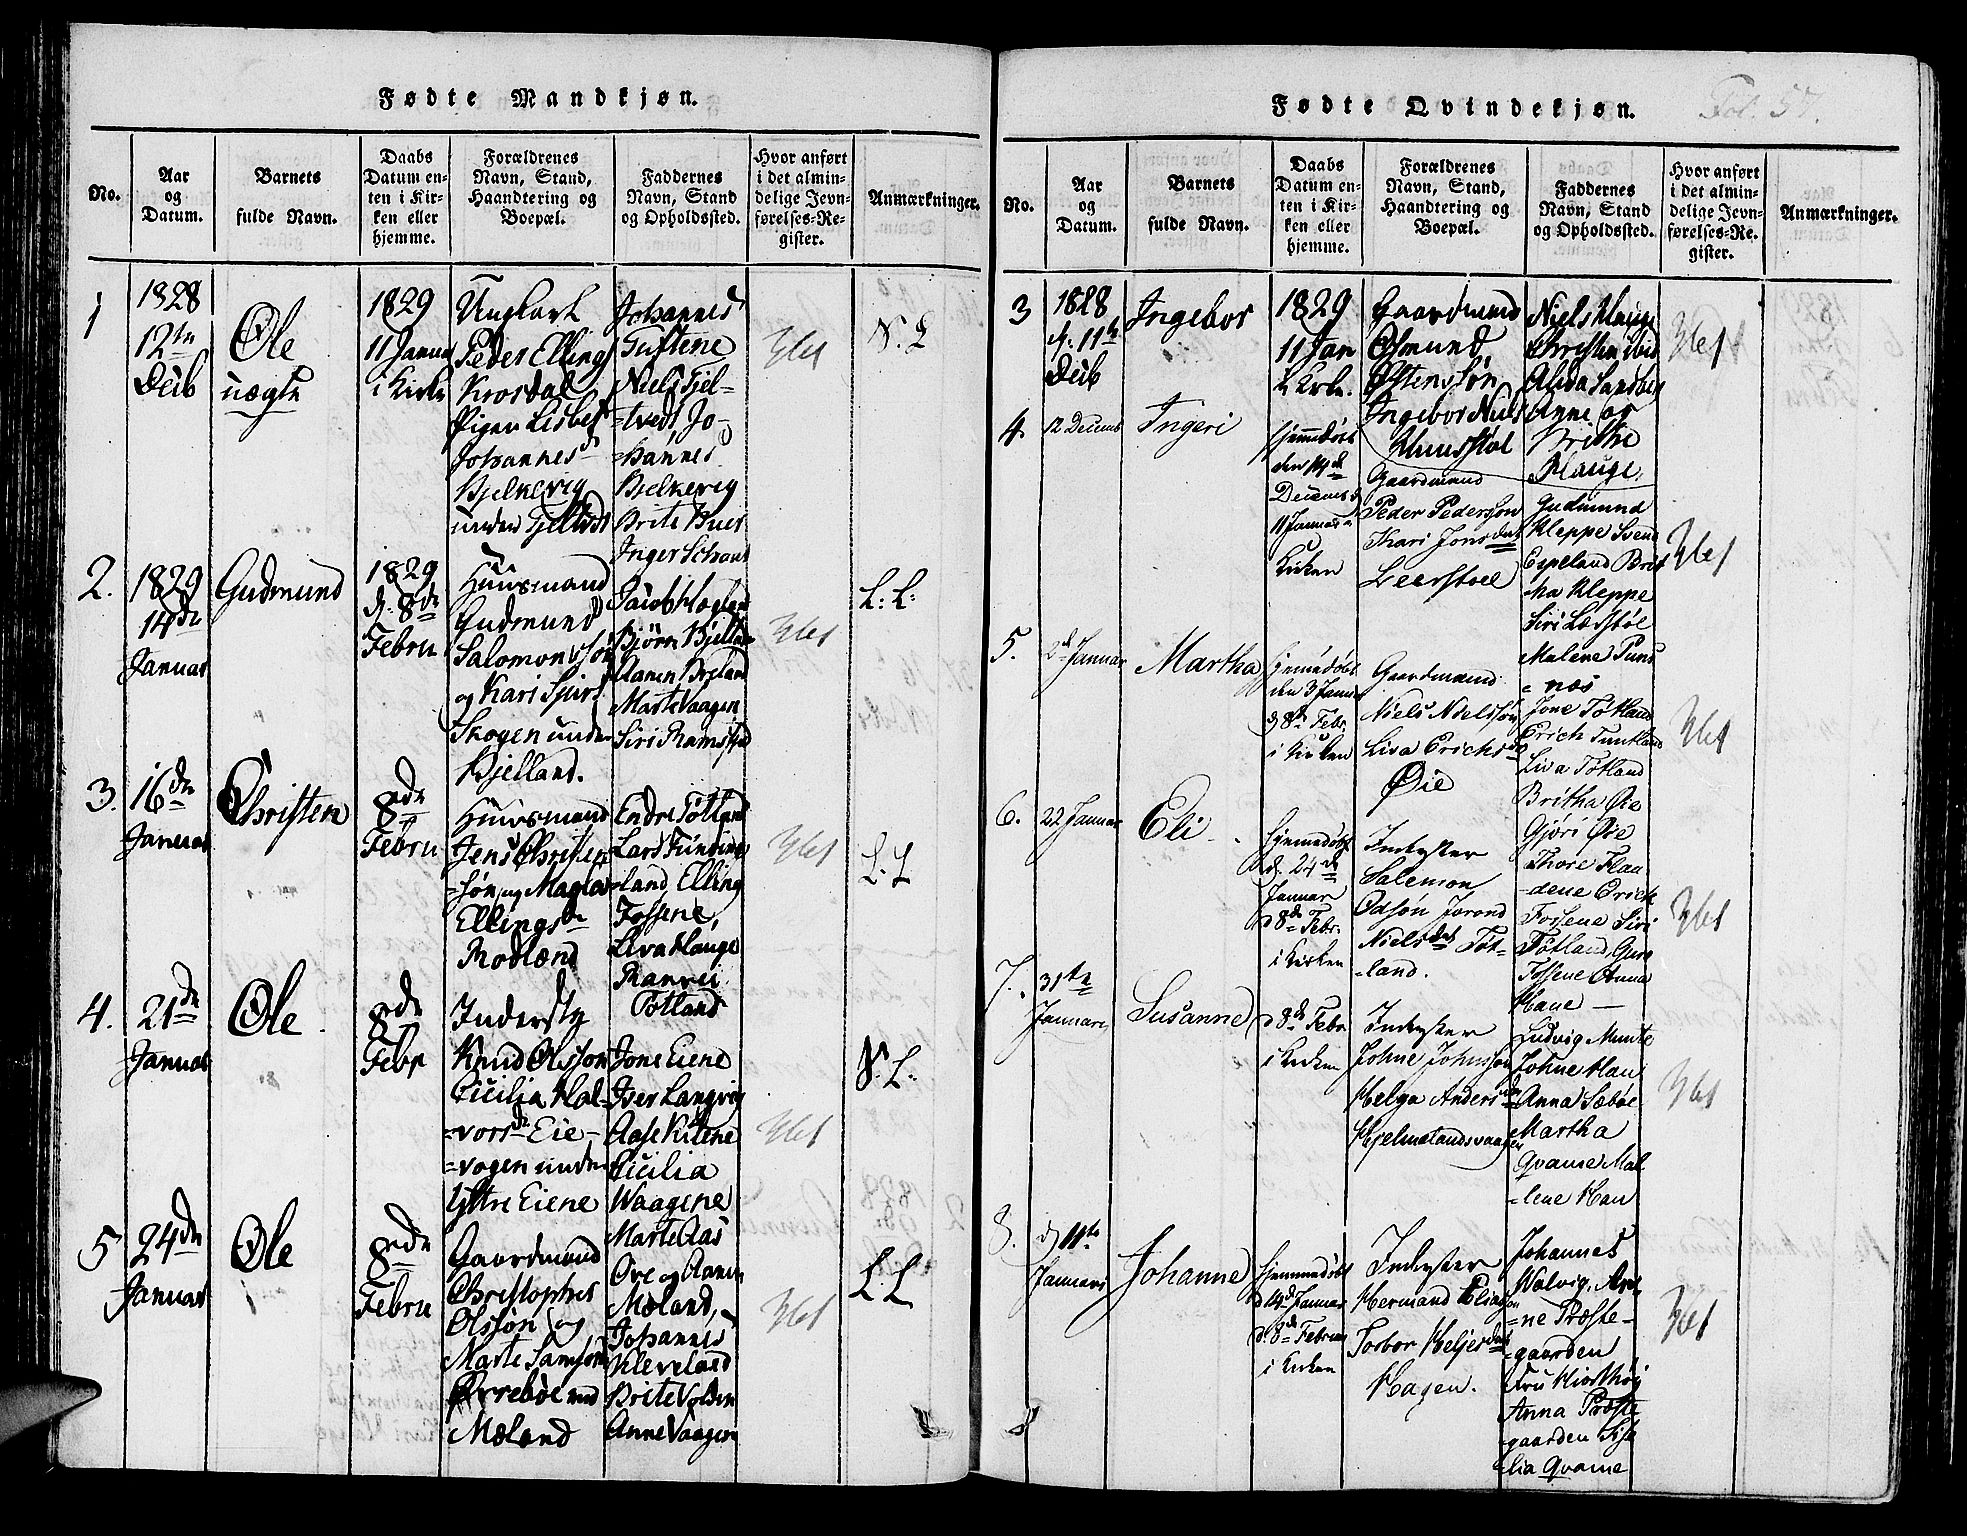 Fødte Mandkjøn.
No.
Aar
og
Datum.
Barnets
fulde Navn.
Daabs
Datum en-
ten i Kir-
ken eller
hjemme.
Forældrenes
Navn, Stand,
Haandtering og
Boepæl.
Faddernes
Navn, Stand
og Opholdssted.
Hvor anført
i det almin-
delige Jevn-
førelses-Re-
gister.
Anmærkninger.
1
1828
12te
Decb
Ole
uægte
1829
11 Janua
i Kirke
Ungkarl
Peder Ellings
Krosdal
Pigen Lisbet
Johannesd
Bjelkevig
under
Johannes
Tuftene
Niels Tjel-
=tvedt Jo-
=hannes
Bjelkevig
Brite Buer
Inger
361
N. L
2.
1829
14de
Januar
Gudmund
1829
d. 8de
Febru
Huusmand
Gudmund
Salomonssøn
og Kari
Skogen under
Bjelland.
Jacob
Bjørn Bjelland
Aanen Breland
Marte Vaagen
Siri
361
L: L:
3.
16de
Januar
Christen
8de
Febru
Huusmand
Jens Christen
=søn og Magla
Ellingsdr
Modland
Endre Tøtland
Lars
=land, Elling
Fossene,
Liva Hauge
Ranvei
Tøtland
361
L. L
4.
21de
Januar
Ole
8de
Febr
Inderste
Knud Olsson
Cicilia Hal-
=vorsdr Eie-
=vogen under
Yttre Eiene
Jone Eiene
Iver Langvig
Aase Kilene
Cicilia
Waagene
Marte Aas
361
N: L:
5
24de
Januar
Ole
8de
Febru
Gaardmand
Christopher
Olssøn og
Marte Samsons
Ørrebøe ved
Mæland
Ove og Aanen
Mæland,
Johannes
Kleveland
Brite Volden
Anne Vaagen
361
L L
Fødte Qvindekjøn.
Fol. 57.
No.
Aar
og
Datum.
Barnets
fulde Navn.
Daabs
Datum en-
ten i Kir-
ken eller
hjemme.
Forældrenes
Navn, Stand,
Haandtering og
Boepæl.
Faddernes
Navn, Stand
og Opholdssted.
Hvor anført
i det almin-
delige Jevn-
førelses-Re-
gister.
Anmærkninger.
3
1828
d. 11te
Decb
Ingebor
1829
11 Jan
Gaardmand
Osmund
Østenssøn
Ingebor Niels
Niels Hauge
Christen ibid
Alida Sandber
Anne og
Brithe
Hauge.
361
4.
12 Decemb
Ingeri
hjemmedøbt
den 14de
Decemb d
11 Januar i
Kirken
Gaardmand
Peder Pederson
Kari Jonsdat
Leerstoel
Gudmund
Kleppe Svend
Espeland Brit
ha Kleppe
Siri
Malene Puns
=næs
361
5.
2d Januar
Martha
hjemmedøbt
den 3 Januar
d 8de Febr.
i Kirken
Gaardmand
Niels Nielssøn
Lisa Erichsdr
Øie
Jone Tøtland
Erich Tuntland
Liva Tøtland
Britha Øie
Gjøri Øie
361
6.
22 Januar
Eli
hjemmedøbt
d. 24de
Januar
d 8de Febr.
i Kirken
Inderster
Salemon
Odsøn Jorond
Nielsdat Tøt-
=land.
Thore Flaa
=dene Erich
Fossene Siri
Tøtland, Guro
Fossene Anna
Hane
361
7.
31te
Januari
Susanne
d 8de Febr
i Kirken
Inderster
Johne Johnsson
Helga Andersdr
Hjelmelandsvaagen
Ludvig Munte
Johne Hau
Anna Sæbøe
Martha
Qvame Mal
=lene Hau
361
8.
d 11te
Januari
Johanne
hjemmedøbt
d 14de Januar
d. 8de Februar
i Kirken
Inderster
Hermand Eliason
Torbor Heljesdat
Hagen.
Johannes
Walvig, An-
=ne Præste-
=gaarden
Fru Hiorthøy
Anna Præste
=gaarden Sise
=lia Qvame
361